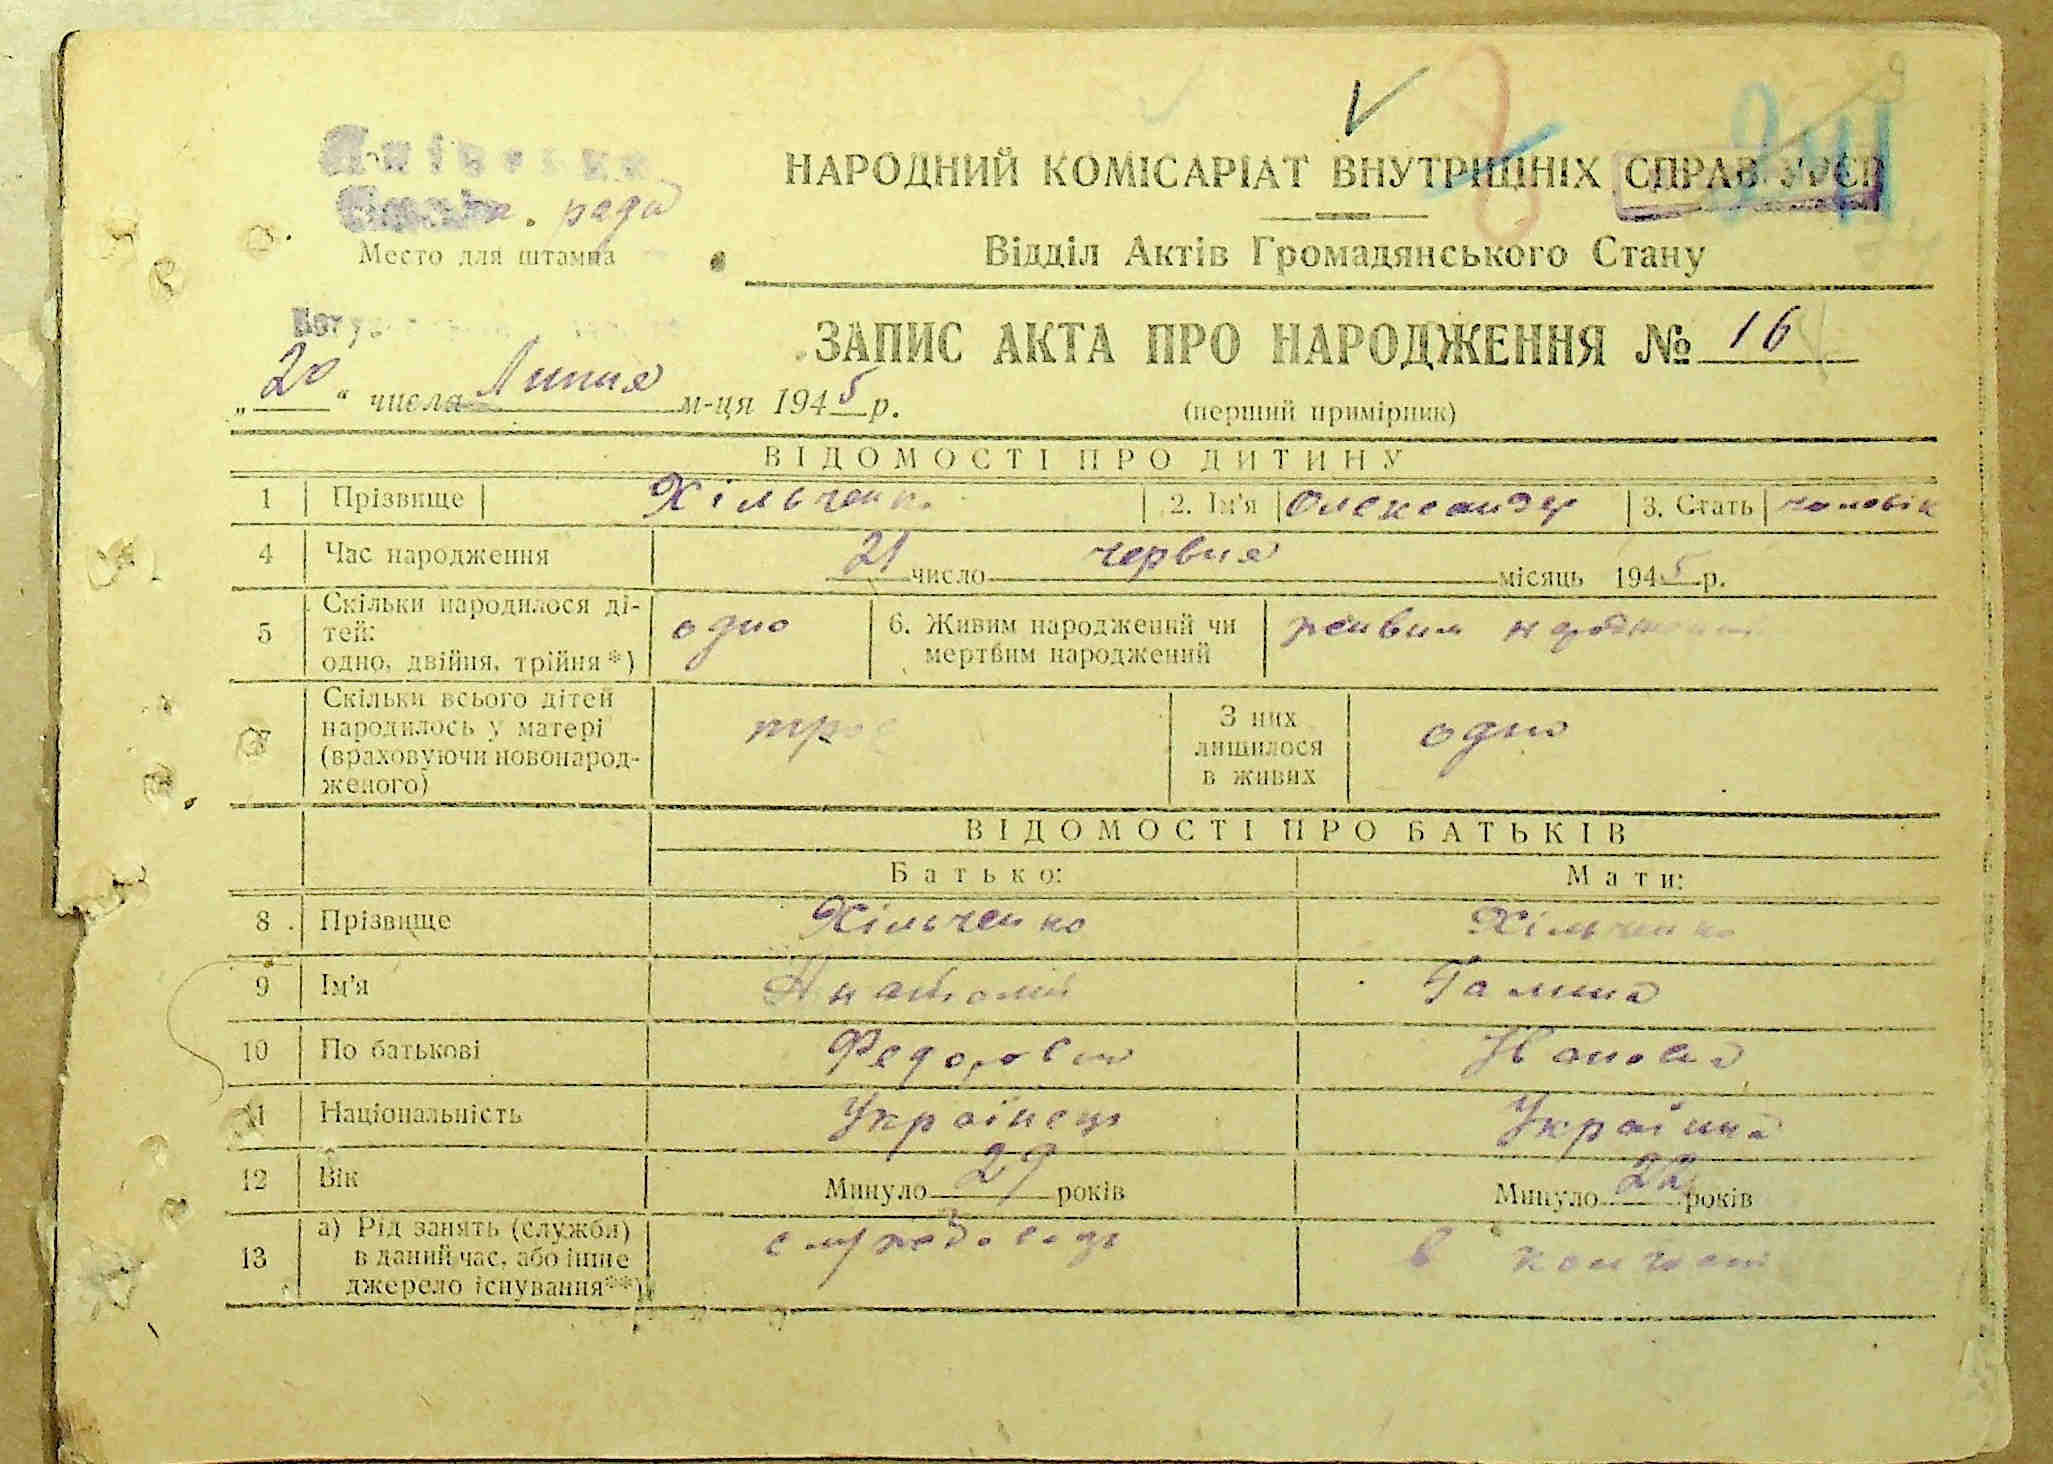 рада
Место для штампа
НАРОДНИЙ КОМІСАРІАТ ВНУТРІШНІХ СПРАВ УРСР
Відділ Актів Громадянського Стану
ЗАПИС АКТА ПРО НАРОДЖЕННЯ № 16
„20“ числа Липня м-ця 1945 р.
(перший примірник)
ВІДОМОСТІ ПРО ДИТИНУ
1 Прізвище Хільченко 2. Ім'я Олександр 3. Стать чоловік
4 Час народження 21 число червня місяць 1945 р.
5 Скільки народилося ді-
тей:
одно, двійня, трійня *) одно 6. Живим народжений чи
мертвим народжений живим народжений
7 Скільки всього дітей
народилось у матері
(враховуючи новонарод-
женого) троє З них
лишилося
в живих одно
ВІДОМОСТІ ПРО БАТЬКІВ
Батько: Мати:
8 Прізвище Хільченко Хільченко
9 Ім'я Анатолій Галина
10 По батькові Федорович
11 Національність Українець Українка
12 Вік Минуло 29 років Минуло 22 років
13 а) Рід занять (служби)
в даний час, або інше
джерело існування**) службовець в